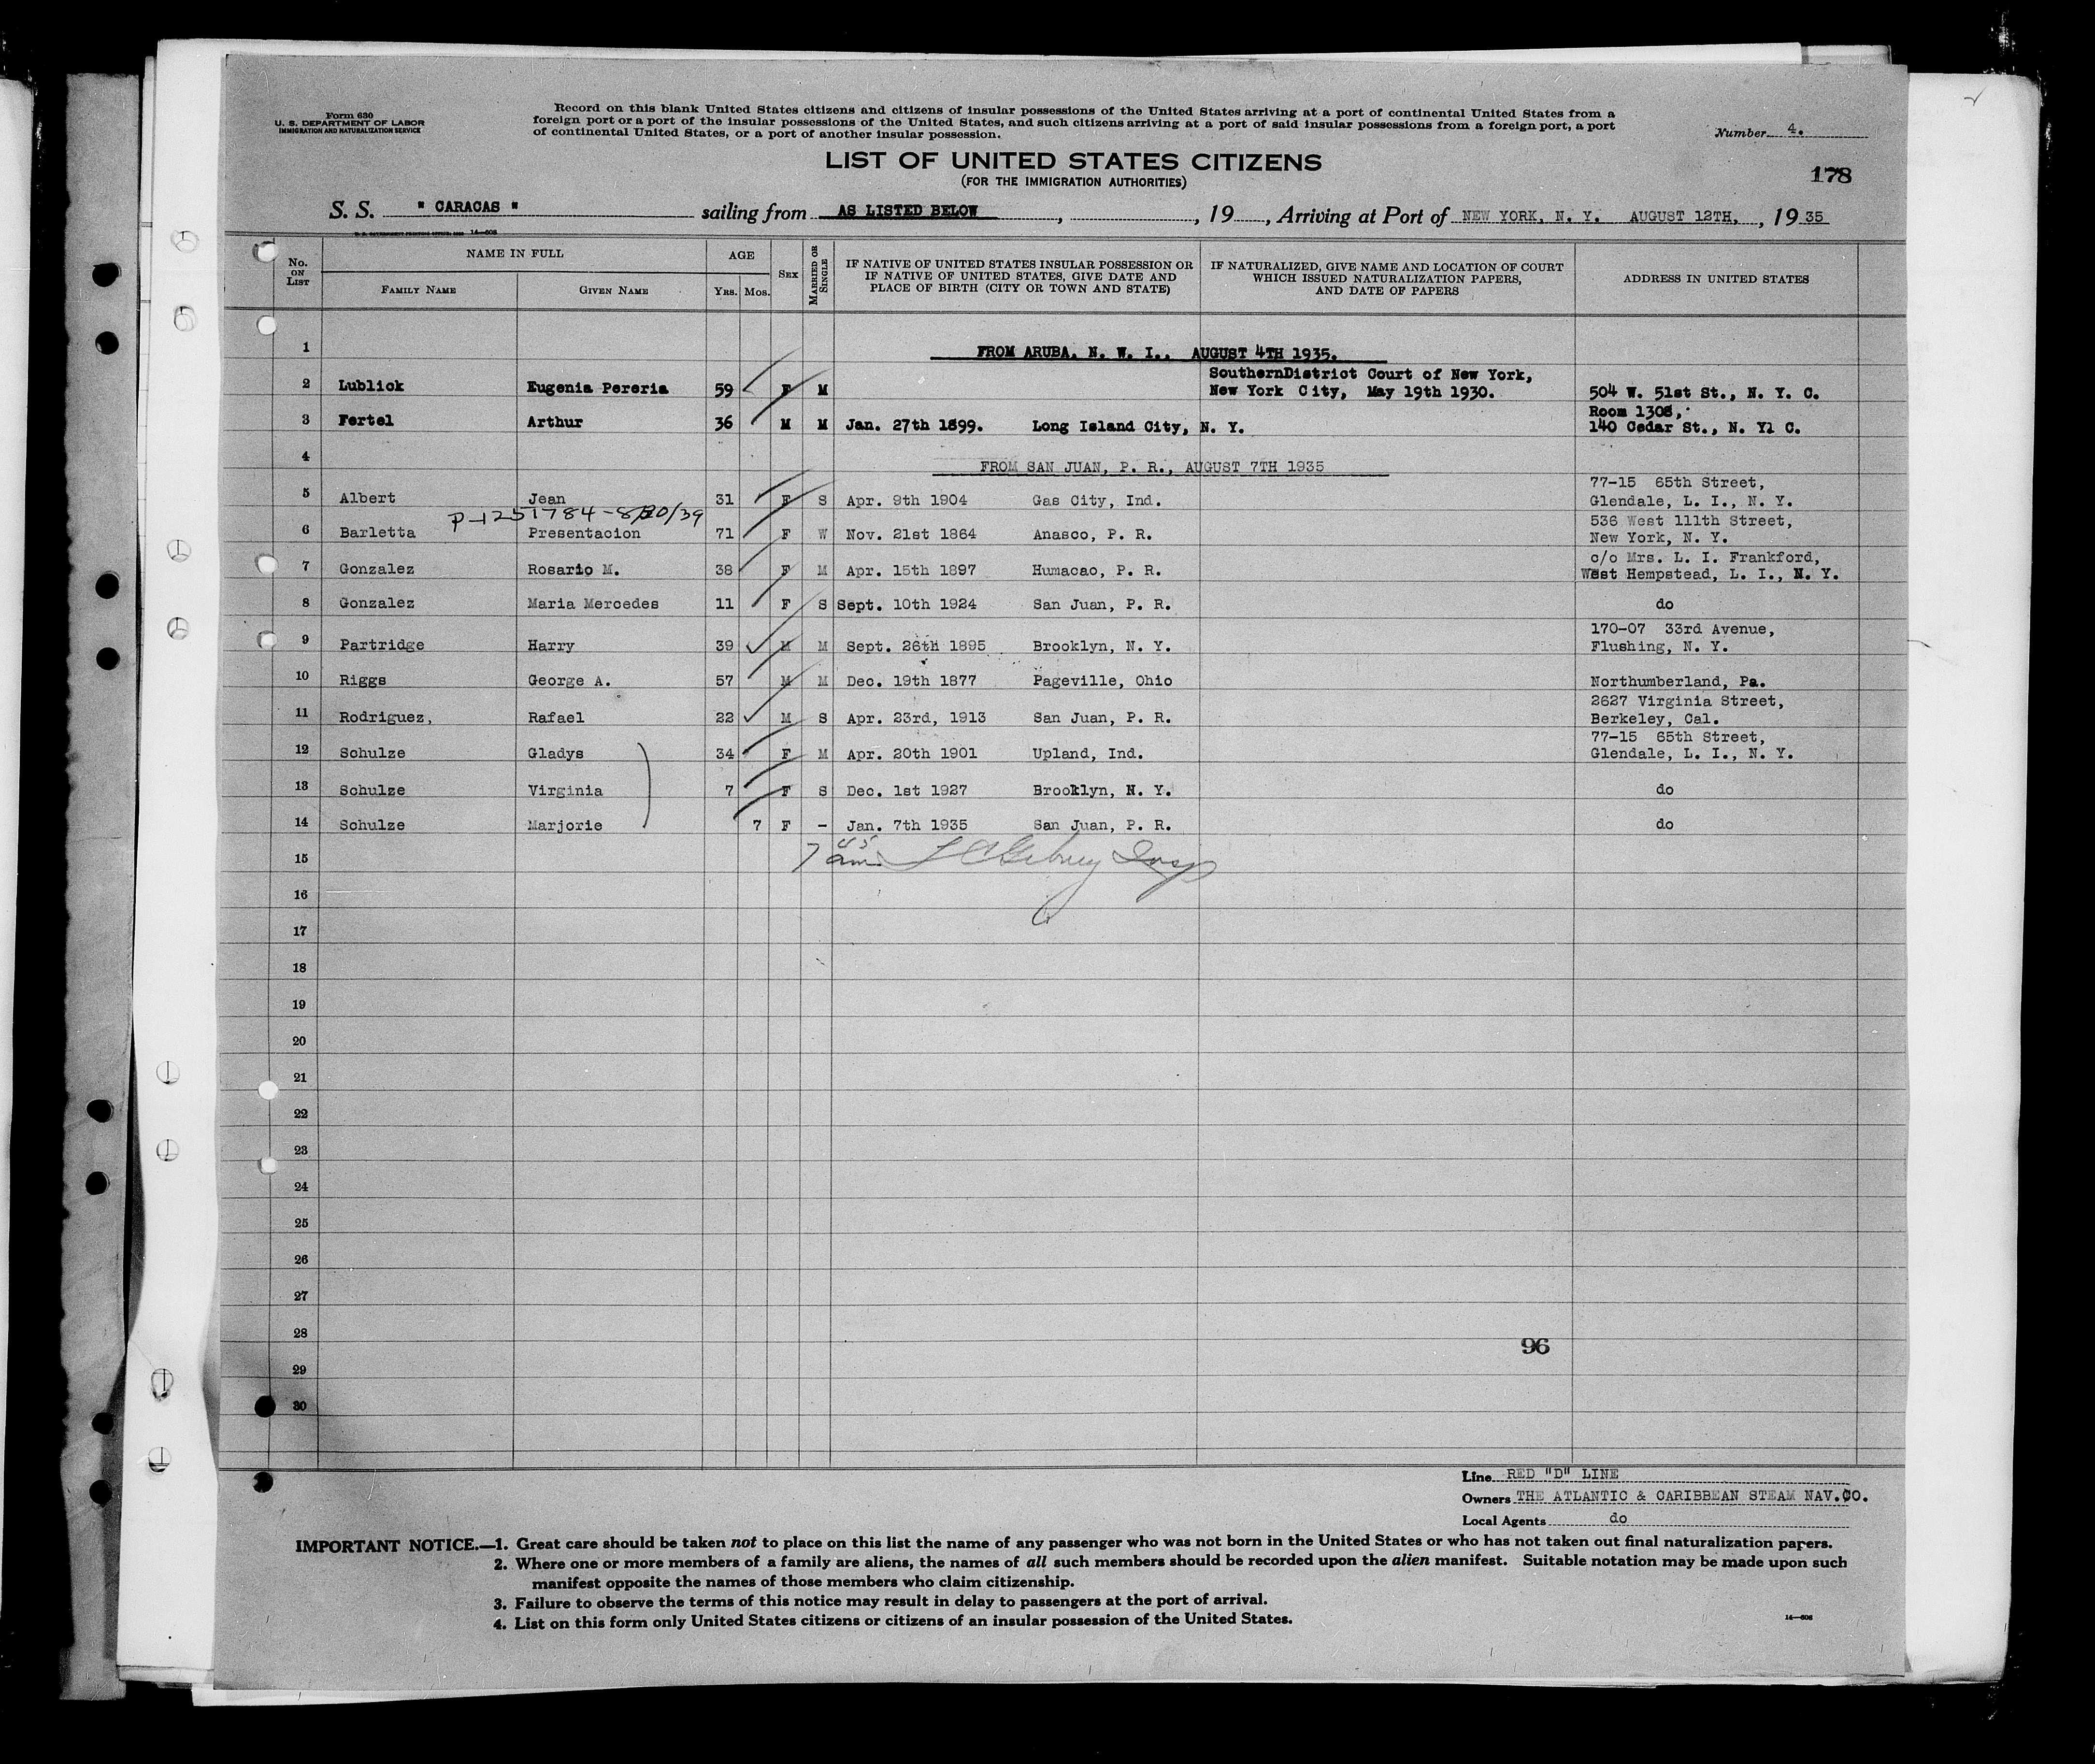 Form 630
U. S. DEPARTMENT OF LABOR
IMMIGRATION AND NATURALIZATION SERVICE
Record on this blank United States citizens and citizens of insular possessions of the United States arriving at a port of continental United States from a
foreign port or a port of the insular possessions of the United States, and such citizens arriving at a port of said insular possessions from a foreign port, a port
of continental United States, or a port of another insular possession.
Number 4.
LIST OF UNITED STATES CITIZENS
(FOR THE IMMIGRATION AUTHORITIES)
178
S. S. " CARACAS " sailing from AS LISTED BELOW , , 19 , Arriving at Port of NEW YORK, N. Y. AUGUST 12TH, , 1935
14—608
No. ON LIST NAME IN FULL FAMILY NAME GIVEN NAME AGE YRS. MOS. SEX MARRIED OR SINGLE IF NATIVE OF UNITED STATES INSULAR POSSESSION OR IF NATIVE OF UNITED STATES, GIVE DATE AND PLACE OF BIRTH (CITY OR TOWN AND STATE) IF NATURALIZED, GIVE NAME AND LOCATION OF COURT WHICH ISSUED NATURALIZATION PAPERS, AND DATE OF PAPERS ADDRESS IN UNITED STATES
1 FROM ARUBA. N. W. I., AUGUST 4TH 1935.
2 Lublick Eugenia Pereria 59 F M SouthernDistrict Court of New York, New York City, May 19th 1930. 504 W. 51st St., N. Y. C.
3 Fertel Arthur 36 M M Jan. 27th 1899. Long Island City, N. Y. Room 1308, 140 Cedar St., N. Yl C.
4 FROM SAN JUAN, P. R., AUGUST 7TH 1935
5 Albert Jean 31 F S Apr. 9th 1904 Gas City, Ind. 77-15 65th Street, Glendale, L. I., N. Y.
P-1251784-8/30/39
6 Barletta Presentacion 71 F W Nov. 21st 1864 Anasco, P. R. 536 West 111th Street, New York, N. Y.
7 Gonzalez Rosario M. 38 F M Apr. 15th 1897 Humacao, P. R. c/o Mrs. L. I. Frankford, West Hempstead, L. I., N. Y.
8 Gonzalez Maria Mercedes 11 F S Sept. 10th 1924 San Juan, P. R. do
9 Partridge Harry 39 M M Sept. 26th 1895 Brooklyn, N. Y. 170-07 33rd Avenue, Flushing, N. Y.
10 Riggs George A. 57 M M Dec. 19th 1877 Pageville, Ohio Northumberland, Pa.
11 Rodriguez, Rafael 22 M S Apr. 23rd, 1913 San Juan, P. R. 2627 Virginia Street, Berkeley, Cal.
12 Schulze Gladys 34 F M Apr. 20th 1901 Upland, Ind. 77-15 65th Street, Glendale, L. I., N. Y.
13 Schulze Virginia 7 F S Dec. 1st 1927 Brooklyn, N. Y. do
14 Schulze Marjorie 7 F - Jan. 7th 1935 San Juan, P. R. do
15 7 45 am
16
17
18
19
20
21
22
23
24
25
26
27
28 96
29
30
Line RED "D" LINE
Owners THE ATLANTIC & CARIBBEAN STEAM NAV.CO.
Local Agents do
IMPORTANT NOTICE.—1. Great care should be taken not to place on this list the name of any passenger who was not born in the United States or who has not taken out final naturalization papers.
2. Where one or more members of a family are aliens, the names of all such members should be recorded upon the alien manifest. Suitable notation may be made upon such
manifest opposite the names of those members who claim citizenship.
3. Failure to observe the terms of this notice may result in delay to passengers at the port of arrival.
4. List on this form only United States citizens or citizens of an insular possession of the United States.
14—608